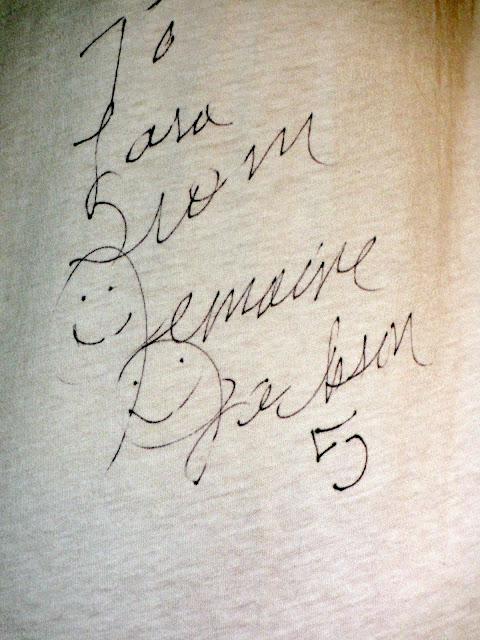 To
Lara
From
Jermaine
Jackson
5